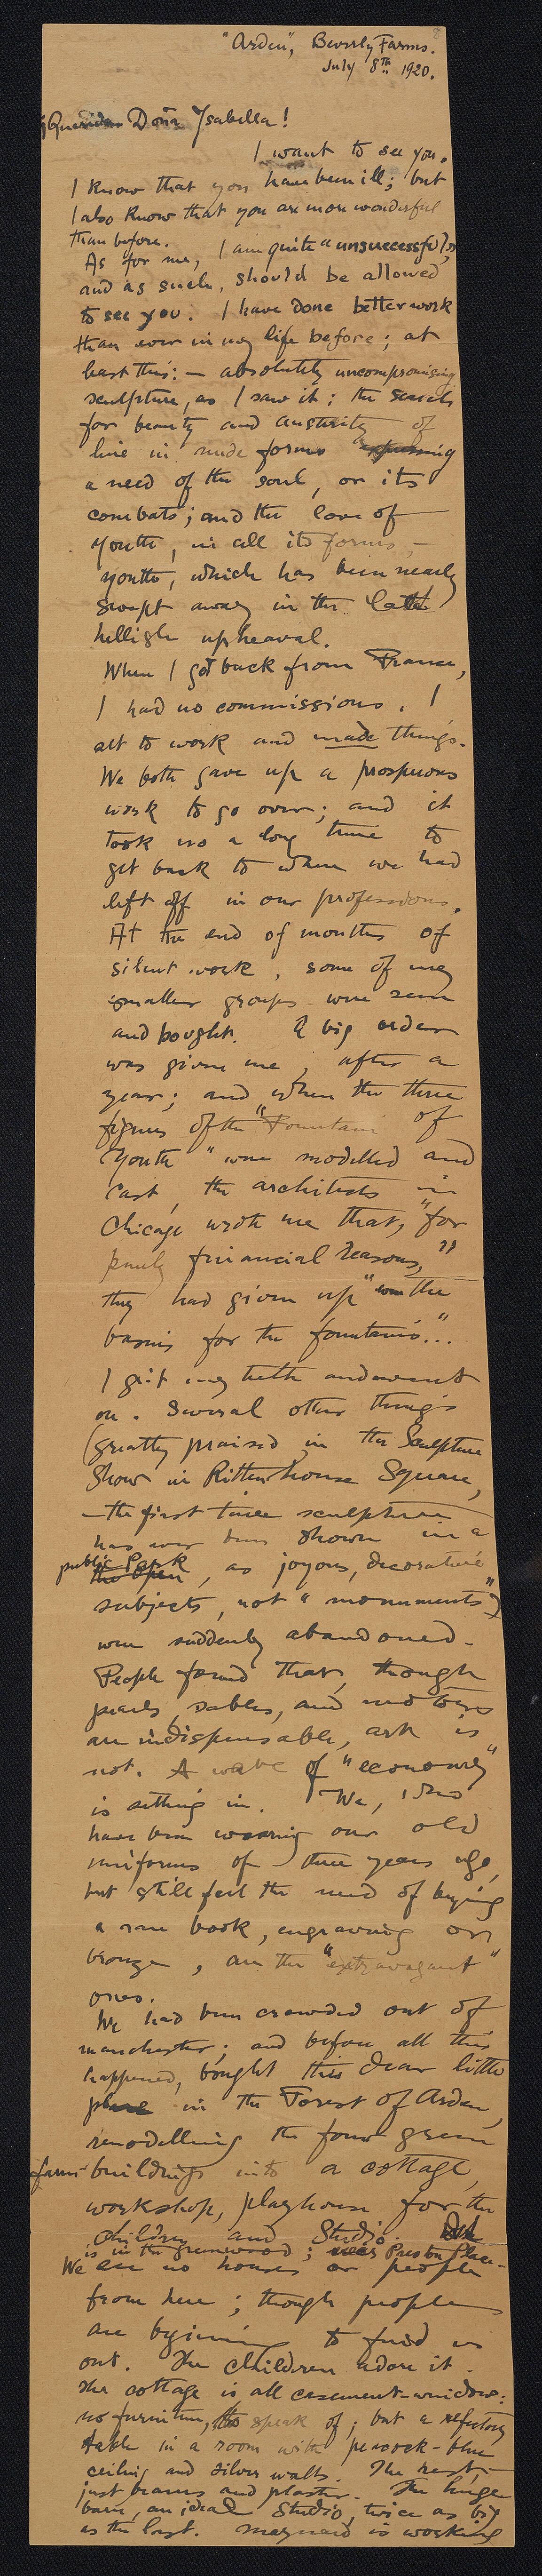 "Arden", Beverly Farms.
July 8th 1920.
¡Querida Doña Ysabella!
I want to see you.
I know that you have been ill; but
I also know that you are more wonderful
than before.
As for me, I am quite "unsuccessful",
and as such, should be allowed
to see you. I have done better work
than ever in my life before; at
least this: — absolutely uncompromising
sculpture, as I saw it; the search
for beauty and austerity of
line in nude forms expressing
a need of the soul, or its
combats; and the love of
youth, in all its forms, —
youth, which has been nearly
swept away in this latest
hellish upheaval.
When I got back from France,
I had no commissions. I
set to work and made things.
We both gave up a prosperous
work to go over; and it
took us a long time to
get back to where we had
left off in our professions.
At the end of months of
silent work, some of my
smaller groups were seen
and bought. A big order
was given me, after a
year; and when the three
figures of the "Fountain of
Youth" were modelled and
cast, the architects in
Chicago wrote me that, "for
purely financial reasons,"
they had given up "the
basins for the fountains."
I grit my teeth and went
on. Several other things
(greatly praised in the Sculpture
Show in Rittenhouse Square,
— the first time sculpture
has ever been shown in a
public Park, as joyous, decorative
subjects, not "monuments")
were suddenly abandoned.
People found that, though
pearls, sables, and motors
are indispensable, art is
not. A wave of "economy"
is setting in. We, who
have been wearing our old
uniforms of three years ago,
but still feel the need of buying
a rare book, engraving or
bronze, are the "extravagant"
ones.
We had been crowded out of
Manchester; and before all this
happened, bought this dear little
place in the Forest of Arden,
remodelling the four green
farm-buildings into a cottage,
workshop, playhouse for the
children and Studio.
is in the greenwood; near Preston Place.
We see no houses or people
from here; though people
are beginning to find us
out. The children adore it.
The cottage is all casement-windows:
no furniture, to speak of; but a refectory
table in a room with peacock-blue
ceiling and silver walls. The rest,
just beams and plaster. The huge
barn, an ideal Studio, twice as big
as the last. Maynard is working